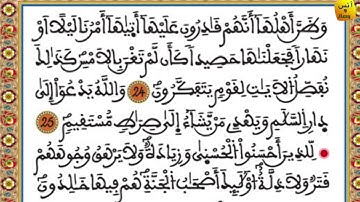 وَظَنَّ أَهْلُهَا أَنَّهُمْ قَادِرُونَ عَلَيْهَا أَتَيٰهَا أَمْرُنَا لَيْلًا اَوْ
نَهَارًا فَجَعَلْنَٰهَا حَصِيدًا كَأَن لَّمْ تَغْنَ بِالَامْسِ كَذَٰلِكَ
نُفَصِّلُ الَايَٰتِ لِقَوْمٍ يَتَفَكَّرُونَ 24 وَاللَّهُ يَدْعُوا إِلَىٰ
دِارِ السَّلَٰمِ وَيَهْدِے مَنْ يَّشَآءُ اِلَىٰ صِرَٰطٍ مُّسْتَقِيمٍ 25
لِّلذِينَ أَحْسَنُوا الْحُسْنَىٰ وَزِيَادَةٌ وَلَا يَرْهَقُ وُجُوهَهُمْ
قَتَرٌ وَلَا ذِلَّةٌ اُوْلَٰٓئِكَ أَصْحَٰبُ الْجَنَّةِ هُمْ فِيهَا خَٰلِدُونَ